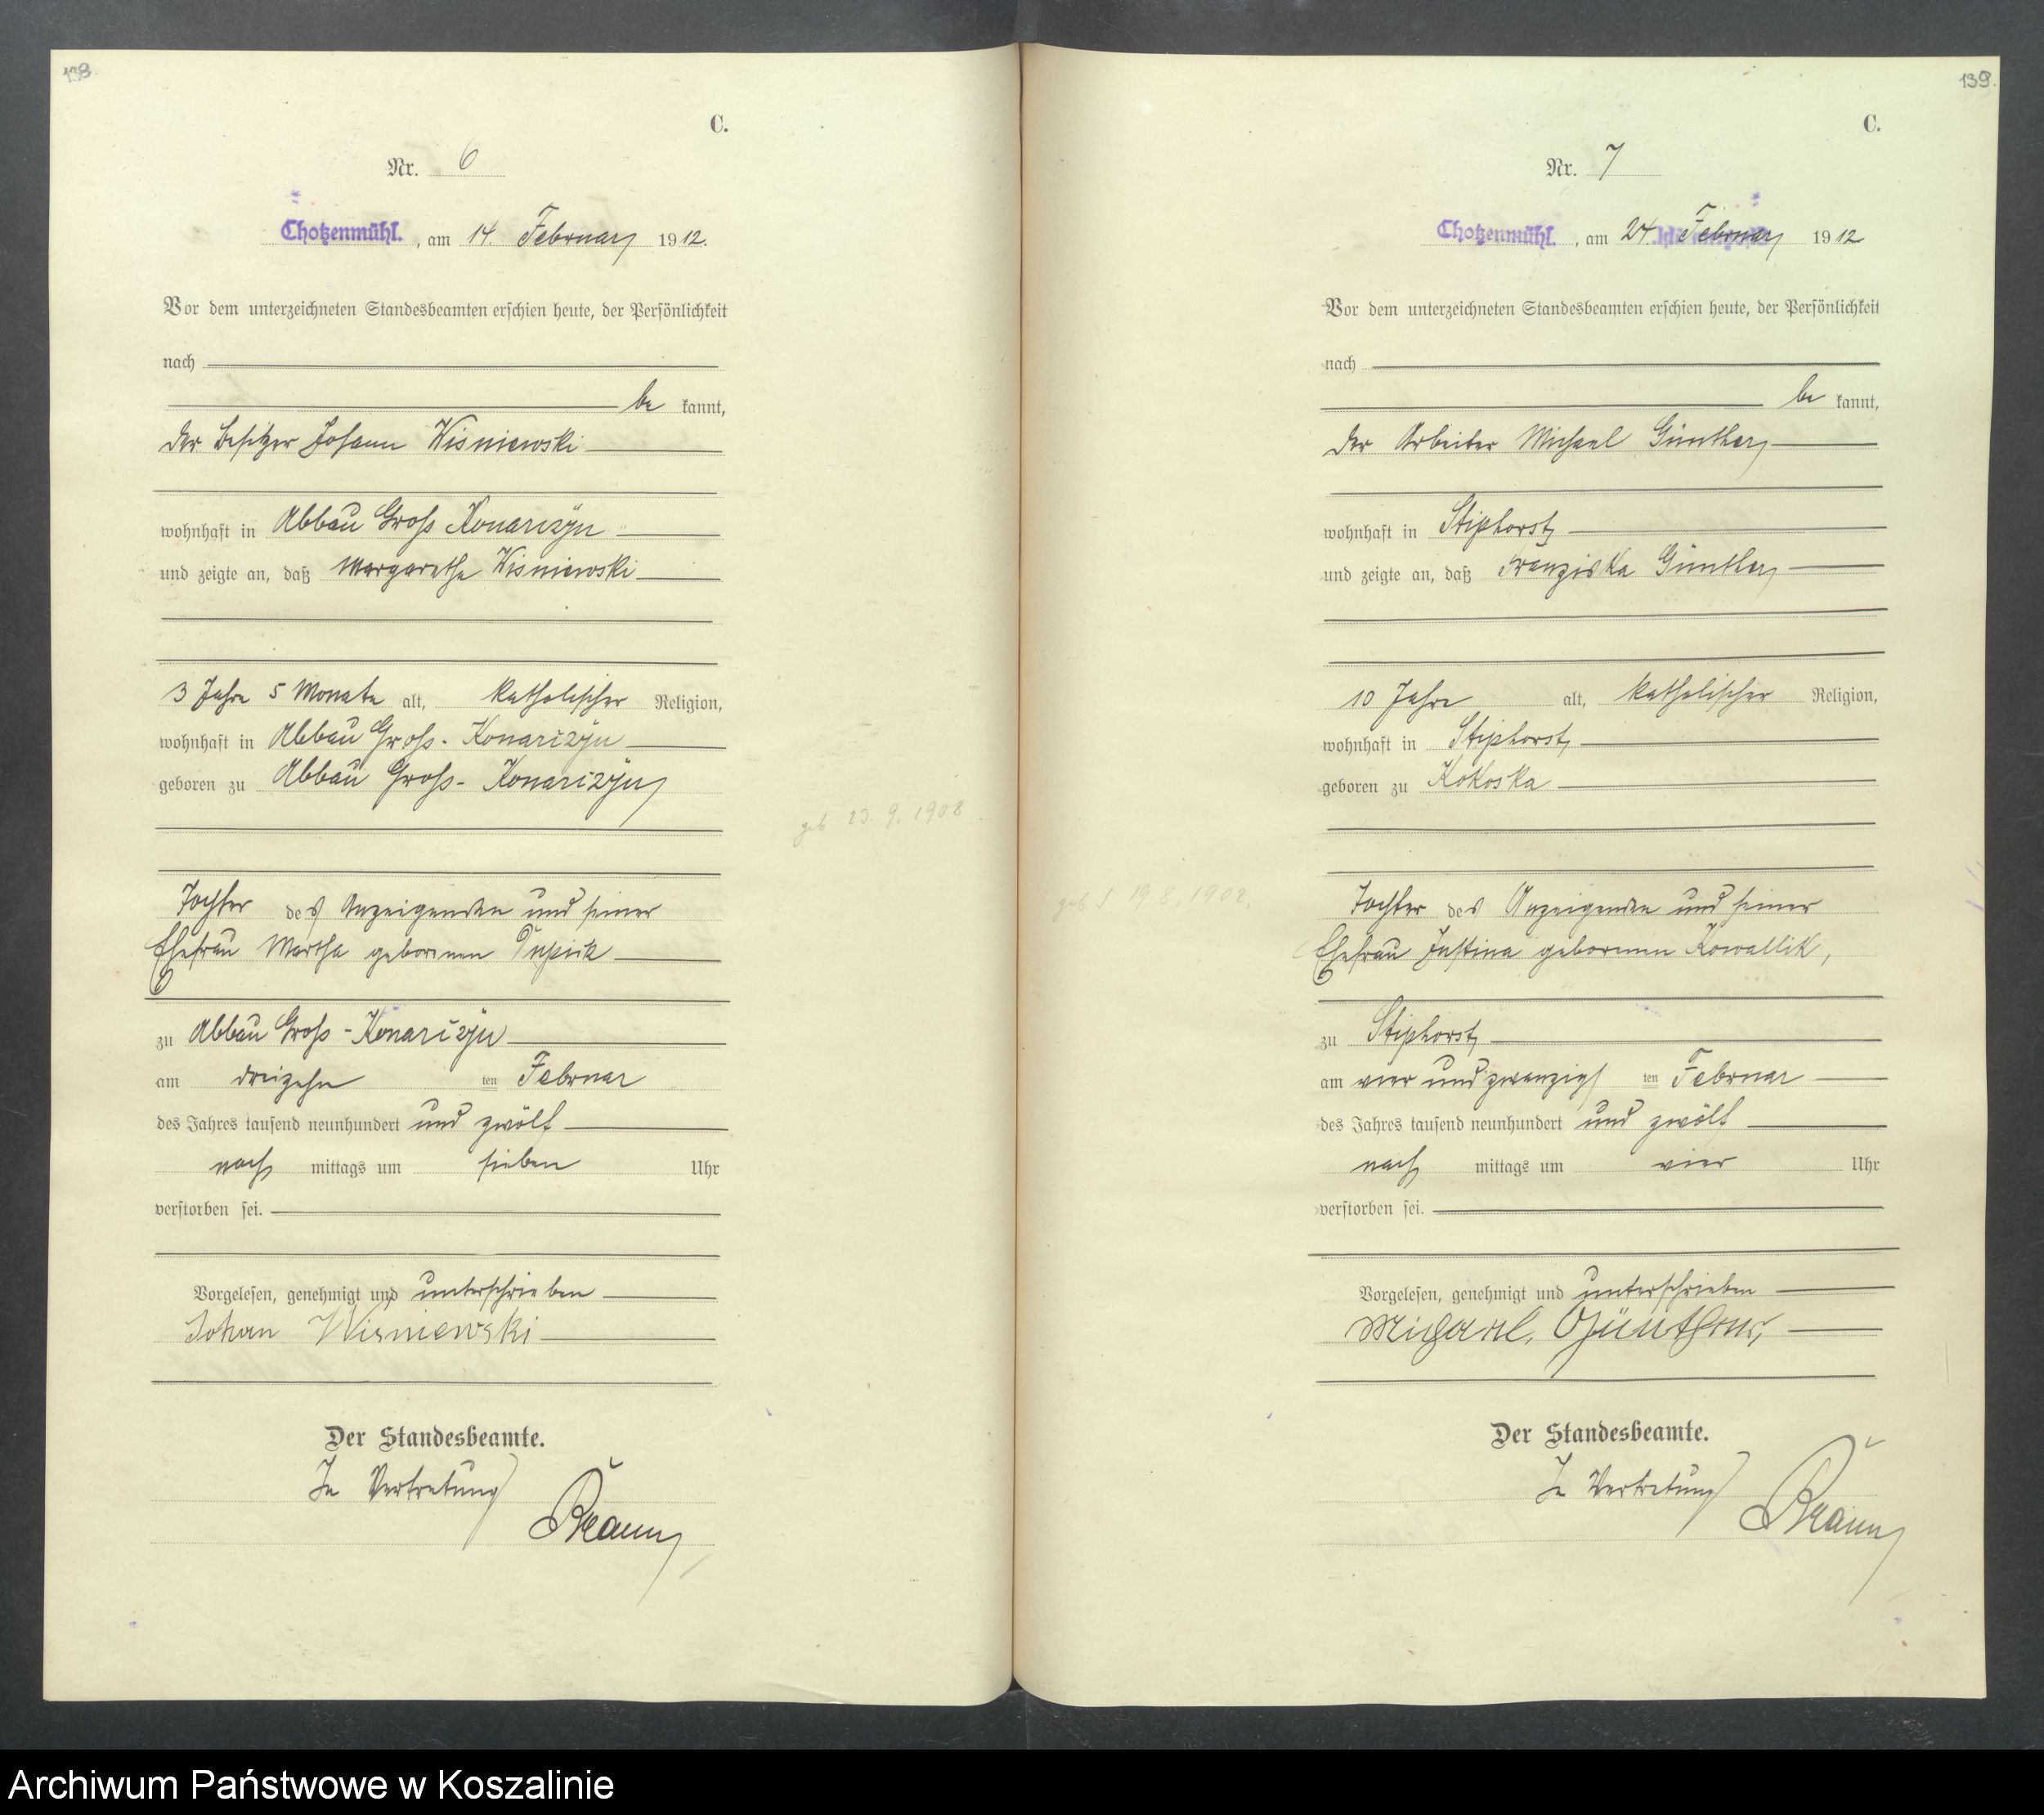 138
C.
Nr. 6
Chotzenmühl. , am 14. Februar 1912.
Vor dem unterzeichneten Standesbeamten erschien heute, der Persönlichkeit
nach
be kannt,
der Besitzer Johann Wisniewski
wohnhaft in Abbau Groß Konarczyn
und zeigte an, daß Margarethe Wisniewski
3 Jahre 5 Monate alt, katholischer Religion,
wohnhaft in Abbau Groß-Konarczyn
geboren zu Abbau Groß-Konarczyn
geb 23. 9. 1908
Tochter des Anzeigenden und seiner
Ehefrau Martha geborenen
zu Abbau Groß-Konarczyn
am dreizehn ten Februar
des Jahres tausend neunhundert und zwölf
nach mittags um sieben Uhr
verstorben sei.
Vorgelesen, genehmigt und unterschrieben
Johan Wisniewski
Der Standesbeamte.
In Vertretung
Braun
139.
C.
Nr. 7
Chotzenmühl. , am 24. Februar 1912
Vor dem unterzeichneten Standesbeamten erschien heute, der Persönlichkeit
nach
be kannt,
der Arbeiter Michael Günther
wohnhaft in Stiphorst
und zeigte an, daß Franziska Günther
10 Jahre alt, katholischer Religion,
wohnhaft in Stiphorst
geboren zu Kokoska
geb 19. 8. 1902.
Tochter des Anzeigenden und seiner
Ehefrau Justina geborenen Kowallik,
zu Stiphorst
am vier und zwanzigs ten Februar
des Jahres tausend neunhundert und zwölf
nach mittags um vier Uhr
verstorben sei.
Vorgelesen, genehmigt und unterschrieben
Michael Günther
Der Standesbeamte.
In Vertretung
Braun
Archiwum Państwowe w Koszalinie